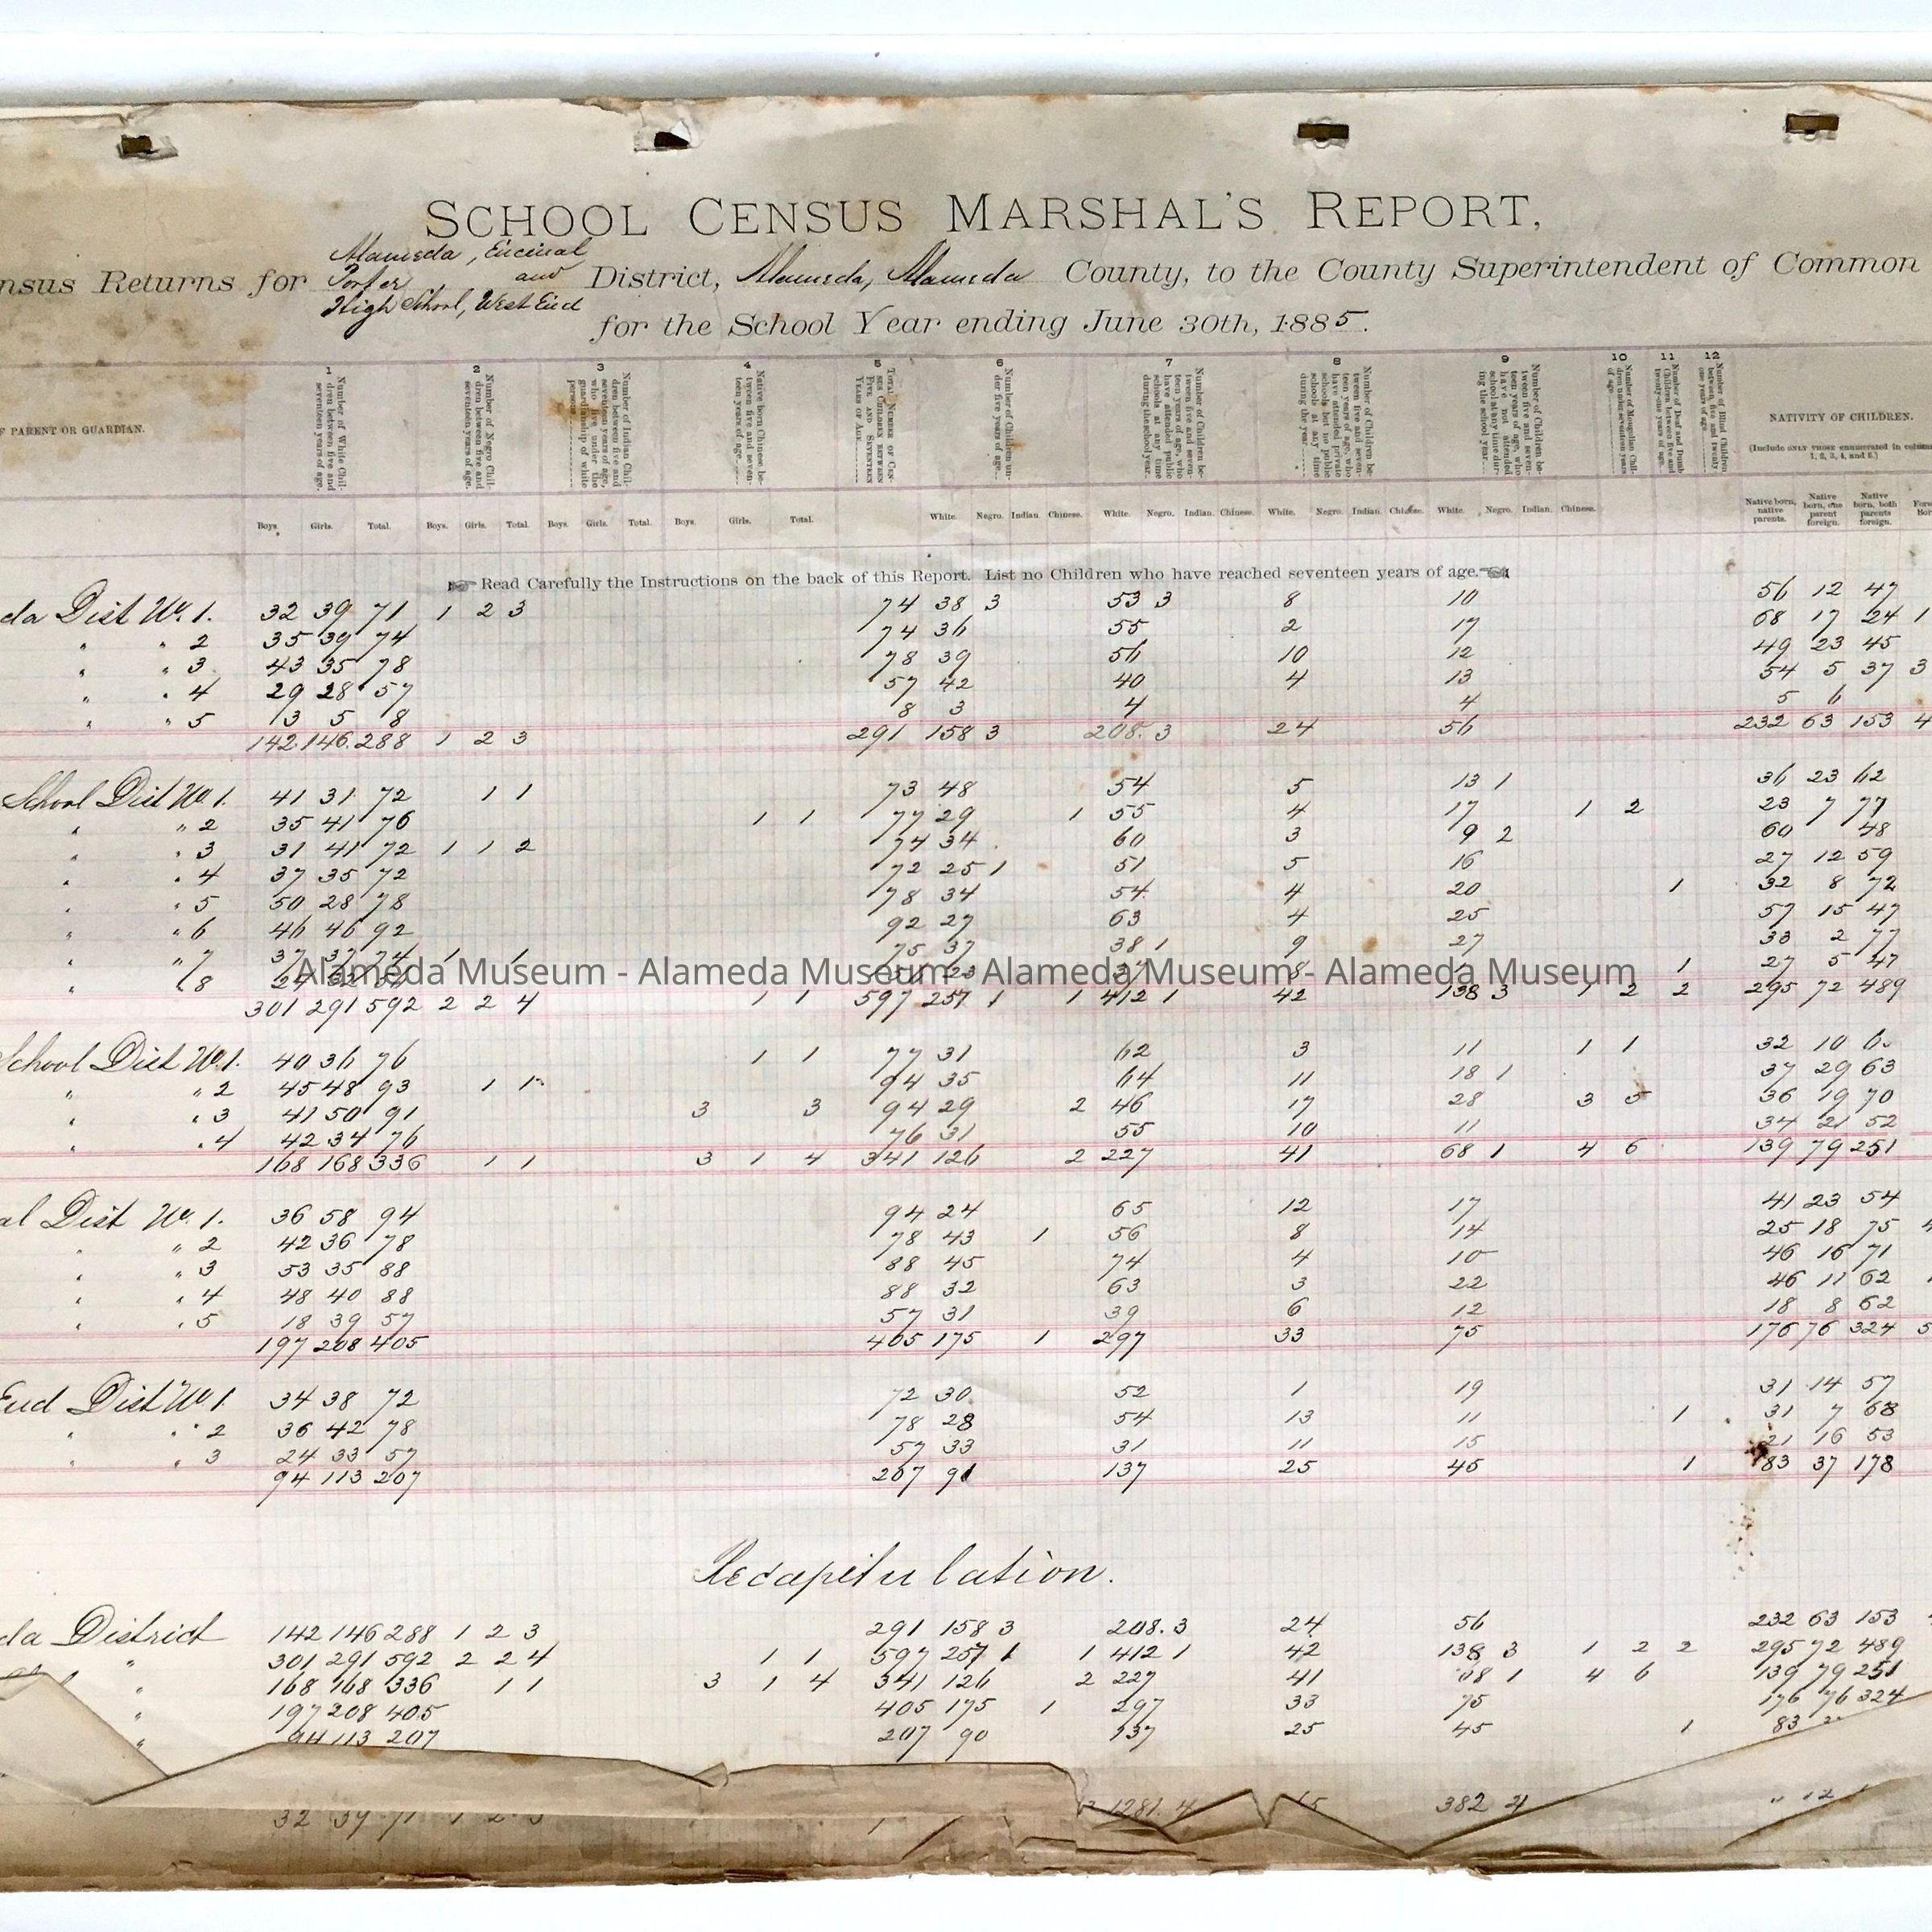 SCHOOL CENSUS MARSHAL'S REPORT,
nsus Returns for Alameda, Encinal Porter and High School, West End District, Alameda, Alameda County, to the County Superintendent of Common
for the School Year ending June 30th, 1885.
F PARENT OR GUARDIAN.
1 Number of White Children between five and seventeen years of age.
2 Number of Negro Children between five and seventeen years of age.
3 Number of Indian Children between five and seventeen years of age, who live under the guardianship of white persons
4 Native born Chinese between five and seventeen years of age.
5 TOTAL NUMBER OF CENSUS CHILDREN BETWEEN FIVE AND SEVENTEEN YEARS OF AGE.
6 Number of Children under five years of age.
7 Number of Children between five and seventeen years of age, who have attended public schools at any time during the school year.
8 Number of Children between five and seventeen years of age, who have attended private schools but no public schools at any time during the year.
9 Number of Children between five and seventeen years of age, who have not attended school at any time during the school year.
10 Number of Mongolian Children under seventeen years of age.
11 Number of Deaf and Dumb Children between five and twenty-one years of age.
12 Number of Blind Children between five and twenty one years of age.
NATIVITY OF CHILDREN.
(Include ONLY THOSE enumerated in colum
1, 2, 3, 4, and 5.)
Boys. Girls. Total. Boys. Girls. Total. Boys. Girls. Total. Boys. Girls. Total. White. Negro. Indian. Chinese. White. Negro. Indian. Chinese. White. Negro. Indian. Chinese. White. Negro. Indian. Chinese. Native born, native parents. Native born, one parent foreign. Native born, both parents foreign. Fore Bor
Read Carefully the Instructions on the back of this Report. List no Children who have reached seventeen years of age.
da Dist No. 1. 32 39 71 1 2 3 74 38 3 53 3 8 10 56 12 47
" " 2 35 39 74 74 36 55 2 17 68 17 24 1
" " 3 43 35 78 78 39 56 10 12 49 23 45
" " 4 29 28 57 57 42 40 4 13 54 5 37 3
" " 5 3 5 8 8 3 4 4 5 6
142 146 288 1 2 3 291 158 3 208 3 24 56 232 63 153 4
School Dist No 1. 41 31 72 1 1 73 48 54 5 13 1 36 23 62
" " 2 35 41 76 1 1 77 29 1 55 4 17 1 2 23 7 77
" " 3 31 41 72 1 1 2 74 34 60 3 9 2 60 48
" " 4 37 35 72 72 25 1 51 5 16 27 12 59
" " 5 50 28 78 78 34 54 4 20 1 32 8 72
" " 6 46 46 92 92 27 63 4 25 57 15 47
" " 7 37 37 74 1 1 75 37 38 1 9 27 33 2 77
" 8 8 1 27 5 47
Alameda Museum - Alameda Museum - Alameda Museum - Alameda Museum
301 291 592 2 2 4 1 1 597 257 1 1 412 1 42 138 3 1 2 2 295 72 489
School Dist No 1. 40 36 76 1 1 77 31 62 3 11 1 1 32 10
" " 2 45 48 93 1 1 94 35 64 11 18 1 37 29 63
" " 3 41 50 91 3 3 94 29 2 46 17 28 3 5 36 19 70
" " 4 42 34 76 76 31 55 10 11 34 21 52
168 168 336 1 1 3 1 4 341 126 2 227 41 68 1 4 6 139 79 251
al Dist No. 1. 36 58 94 94 24 65 12 17 41 23 54
" 2 42 36 78 78 43 1 56 8 14 25 18 75 4
" " 3 53 35 88 88 45 74 4 10 46 16 71
" " 4 48 40 88 88 32 63 3 22 46 11 62
" " 5 18 39 57 57 31 39 6 12 18 8 62
197 208 405 405 175 1 297 33 75 176 76 324 5
End Dist No 1. 34 38 72 72 30 52 1 19 31 14 57
" " 2 36 42 78 78 28 54 13 11 1 31 7 68
" " 3 24 33 57 57 33 31 11 15 21 16 53
94 113 207 207 91 137 25 45 1 83 37 178
Recapitulation.
da District 142 146 288 1 2 3 291 158 3 208. 3 24 56 232 63 153
" 301 291 592 2 2 4 1 1 597 257 1 1 412 1 42 138 3 1 2 2 295 72 489
" 168 168 336 1 1 3 1 4 341 126 2 227 41 68 1 4 6 139 79 251
" 197 208 405 405 175 1 297 33 75 176 76 324
" 94 113 207 207 90 137 25 45 1 83
32 39 71 1 2 3 1281. 4 382 4